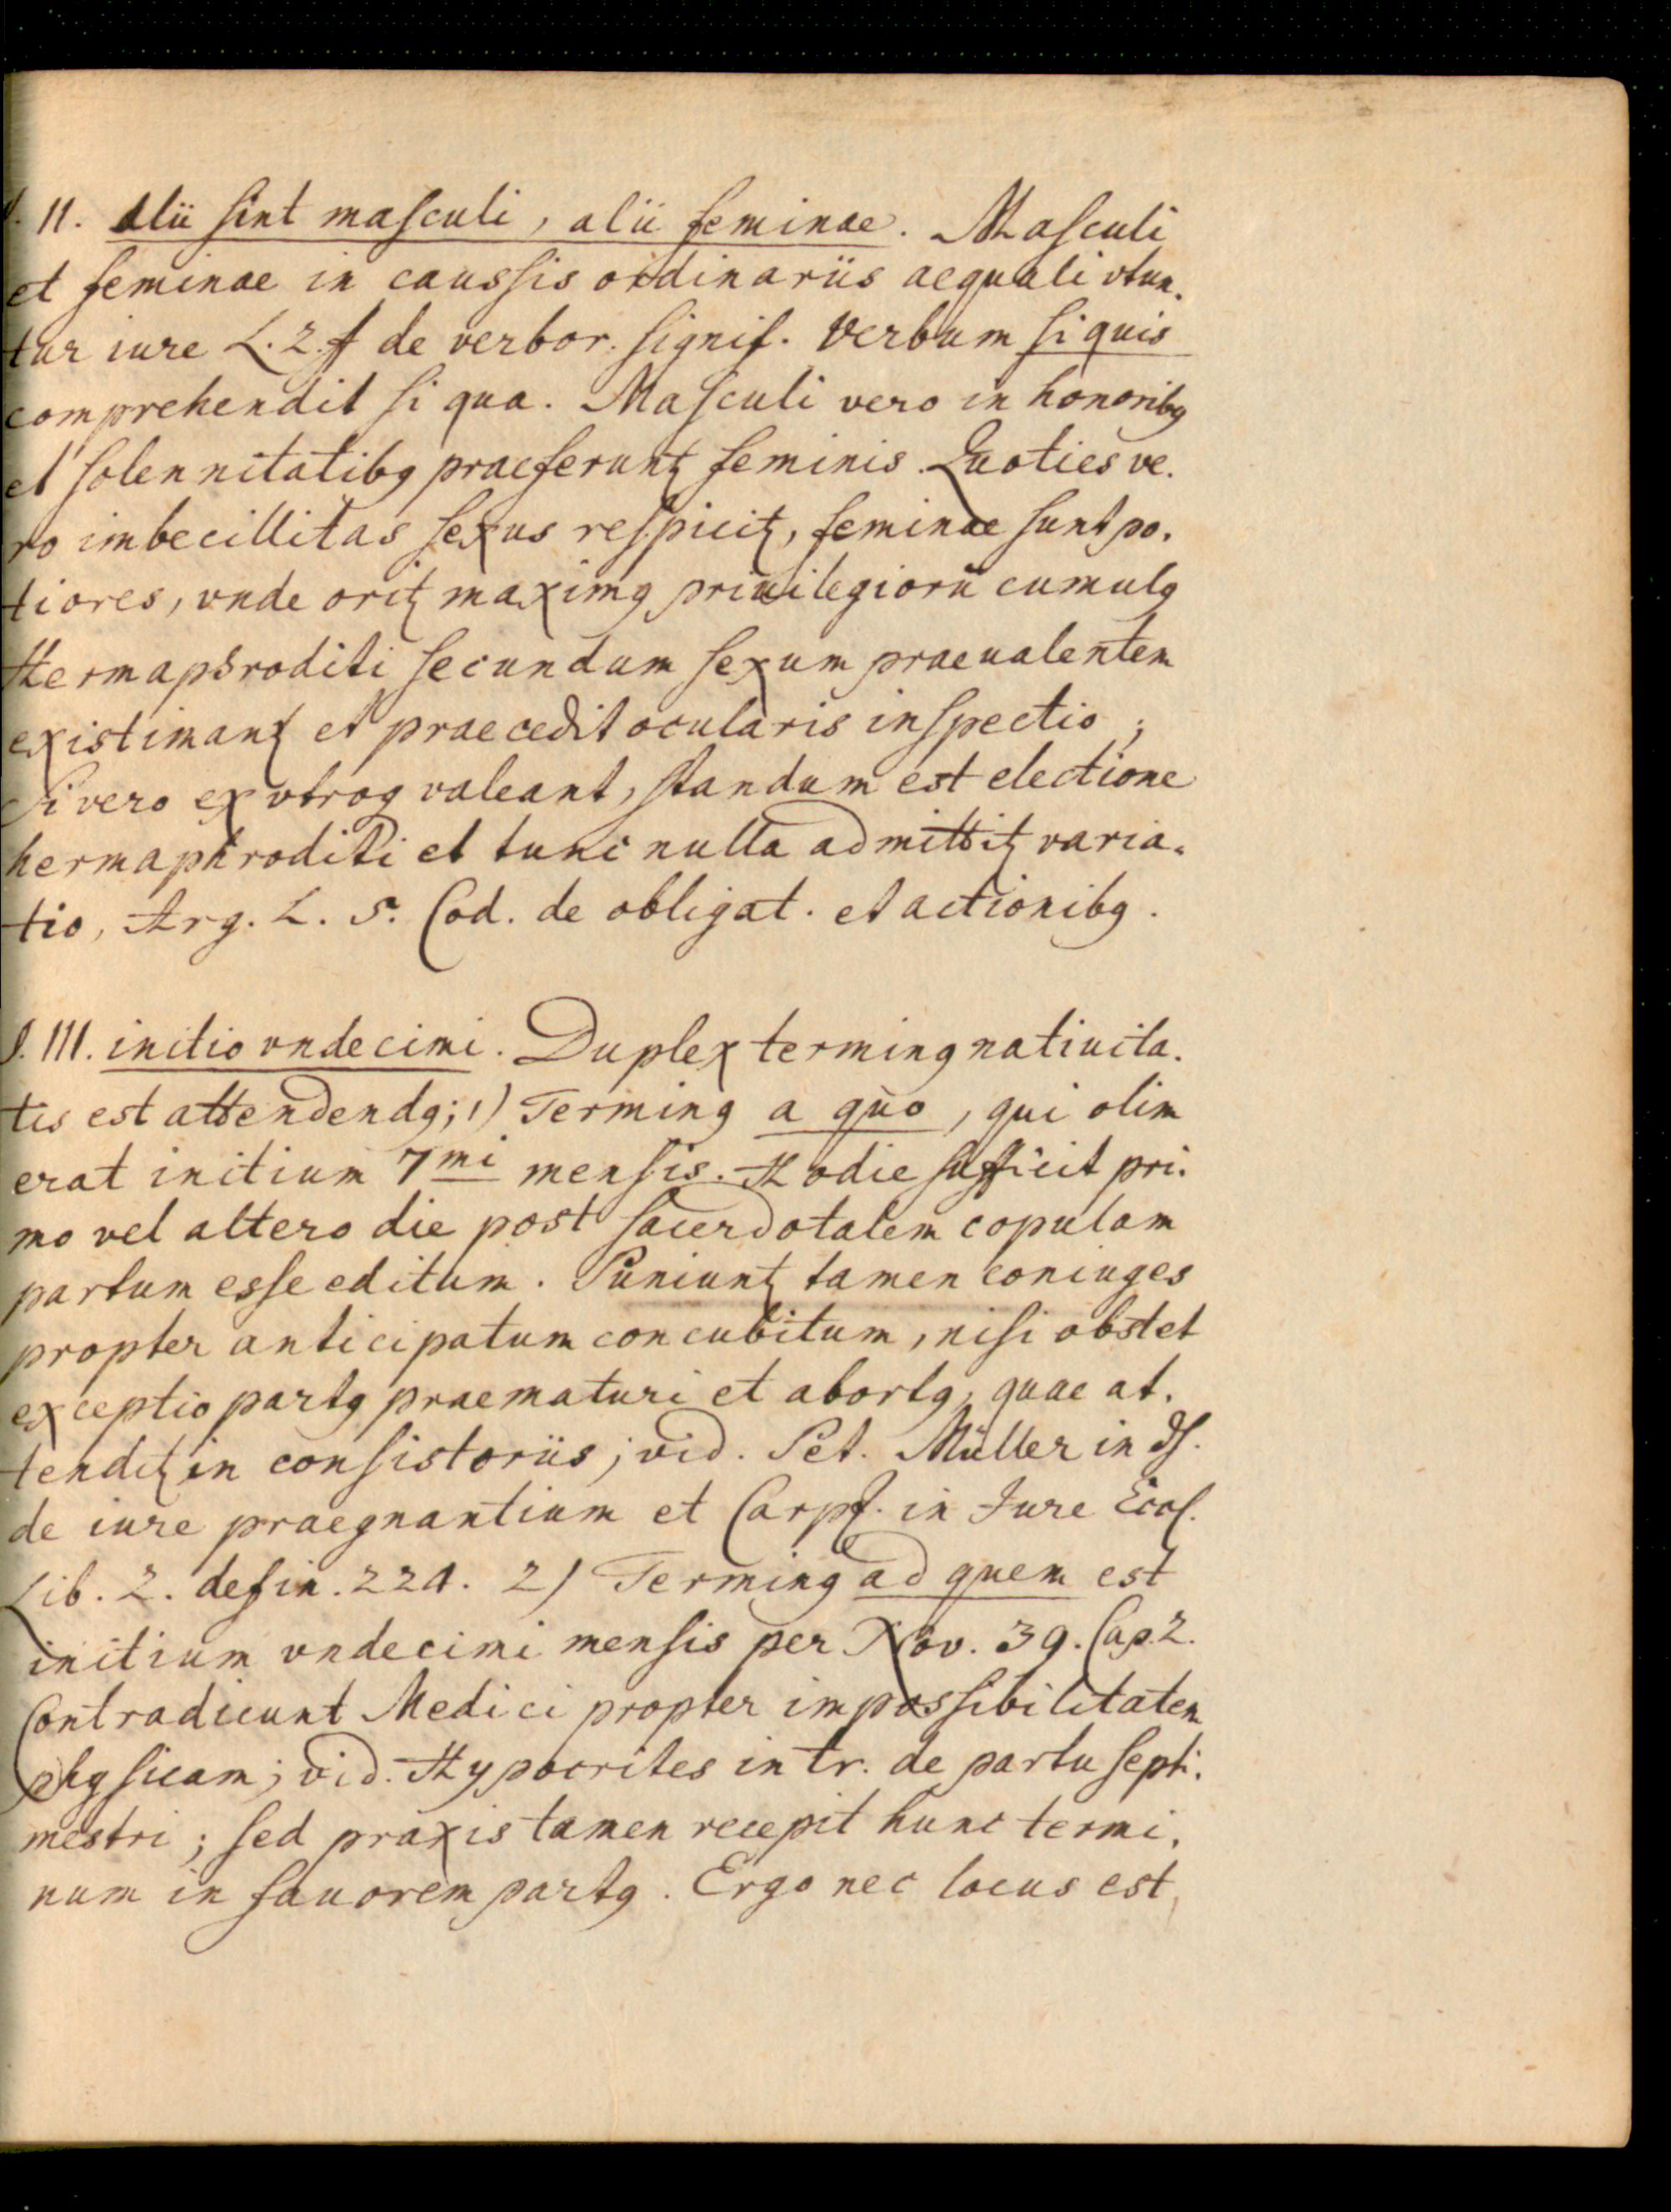 §. II. Alii sint masculi, alii feminae. Masculi
et feminae in caussis ordinariis aequali vtun-
tur iure L. 2. ff de verbor. signif. Verbum si quis
comprehendit si qua. Masculi vero in honoribꝫ
et solennitatibꝫ praeferuntꝫ feminis. Quoties ve-
ro imbecillitas sexus respicitꝫ, feminae sunt po-
tiores, vnde oritꝫ maximꝫ priuilegiorū cumulꝫ
Hermaphroditi secundum sexum praeualentem
existimantꝫ et praecedit ocularis inspectio;
Si vero ex vtroqꝫ valeant, standum est electione
hermaphroditi et tunc nulla admittitꝫ varia-
tio, Arg. L. 5. Cod. de obligat. et actionibꝫ.
§. III. initio vndecimi. Duplex terminꝫ natiuita-
tis est attendendꝫ; 1) Terminꝫ a quo, qui olim
erat initium 7mi mensis. Hodie sufficit pri-
mo vel altero die post sacerdotalem copulam
partum esse editum. Puniuntꝫ tamen coniuges
propter anticipatum concubitum, nisi obstet
exceptio partꝫ praematuri et abortꝫ, quae at-
tenditꝫ in consistoriis; vid. Pet. Müller in ds.
de iure praegnantium et Carpz. in Jure Eccl.
Lib. 2. defin. 221. 2) Terminꝫ ad quem est
initium vndecimi mensis per Nov. 39. Cap. 2.
Contradicunt Medici propter impossibilitatem
physicam; vid. Hypocrites in tr. de partu septi-
mestri; sed praxis tamen recepit hunc termi-
num in fauorem partꝫ. Ergo nec locus est